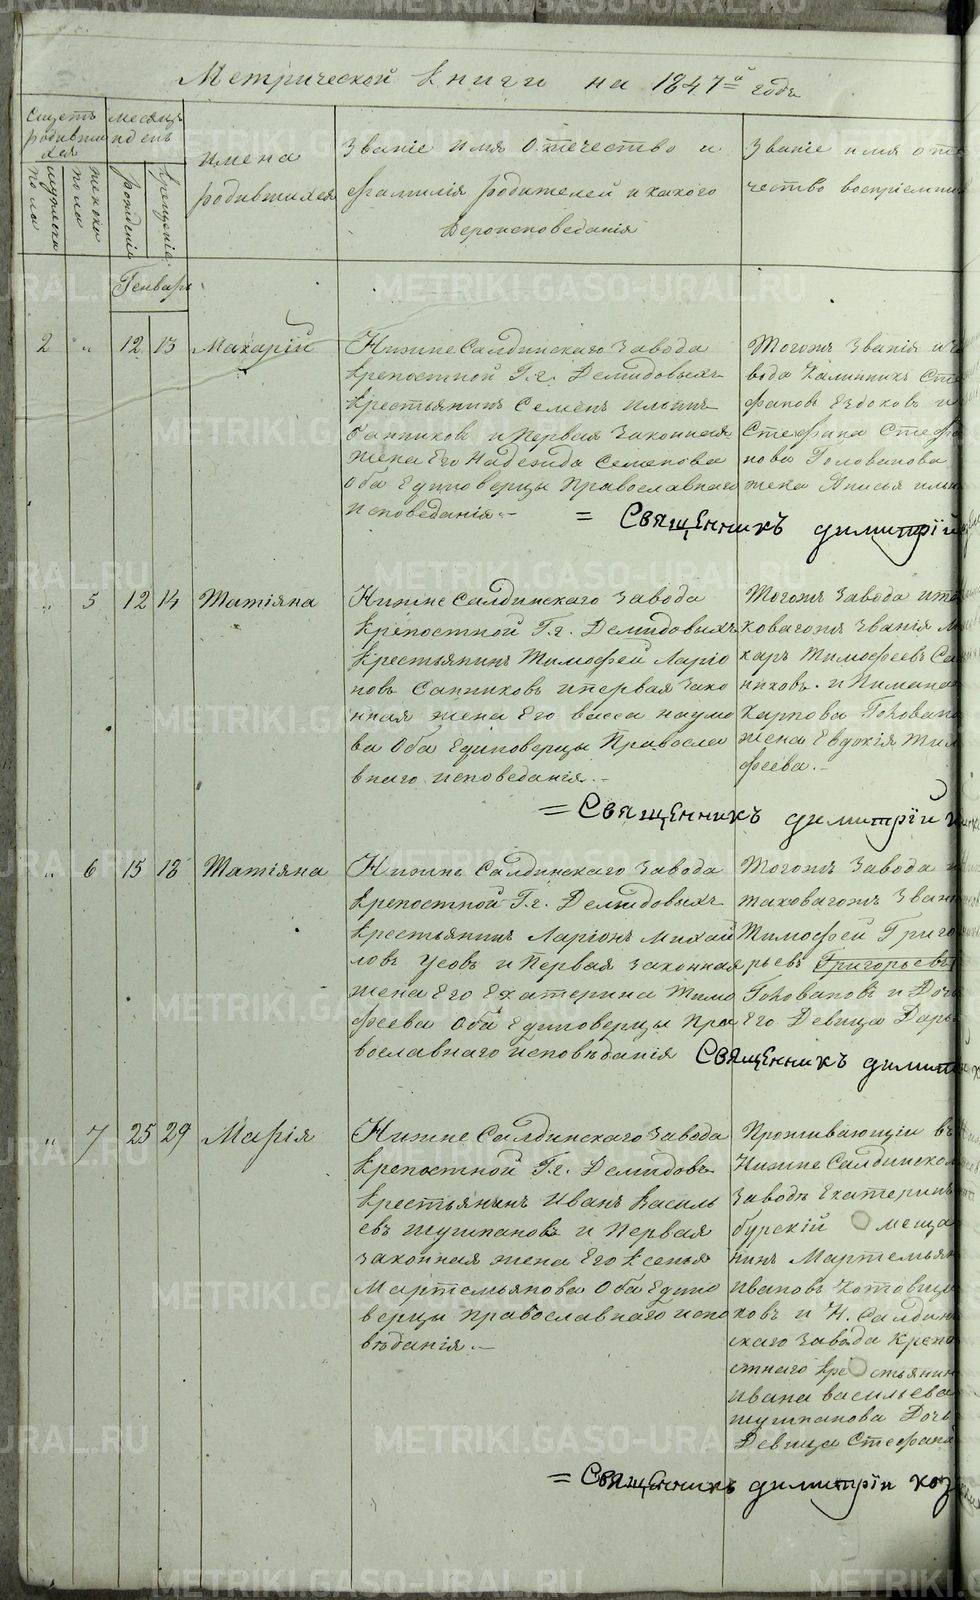 Метрической книги на 1847й годъ
Счетъ родившихся
мужеска пола
женска пола
месяцъ и день
рожденія
крещенія
имена родившихся
Званіе имя Отечество и
фамилія родителей и какого
вероисповеданія
Званіе имя оте
чество воспріемни
Генварь
2 " 12 13 Макарій
НижнеСалдинскаго Завода
крепостной Г.г. Демидовыхъ
крестьянинъ Семенъ Ильинъ
Санниковъ и Первая Законная
жена Его Надежда Семенова
Оба Единоверцы Православнаго
Исповеданія. -
Тогожъ Званія и За
вода Калинникъ Сте
фановъ Евдоковъ и
Стефана Стефа
нова Голованова
жена Анисья
= Священникъ димитрїй
" 5 12 14 Татіяна
Нижне Салдинскаго Завода
крепостной Г.г. Демидовыхъ
крестьянинъ Тимофей Ларіо
новъ Санниковъ и первая зако
нная жена Его васса наумо
ва Оба Единоверцы Правосла
внаго исповеданія. -
Тогожъ Завода и та
ковагожъ Званія Ма
каръ Тимофеевъ Са
нниковъ. и Пимана
Карпова Голована
жена Евдокія Тим
феева. -
= Священникъ димитрїй
" 6 15 18 Татіяна
Нижне Салдинскаго Завода
крепостной Г.г. Демидовыхъ
крестьянинъ Ларіонъ Михай
ловъ Усовъ и Первая Законная
жена Его Екатерина Тимо
феева Оба Единоверцы Пра
вославнаго исповѣданія
Тогожъ Завода и
таковагожъ Зван
Тимофей Григо
рьевъ Григорьевъ
Головановъ и Доч
Его Девица Дарь
Священникъ димит
" 7 25 29 Марія
Нижне Салдинскаго Завода
крепостной Г.г. Демидовъ
крестьянинъ Иванъ Василь
евъ Шушпановъ и Первая
законная жена Его Ксенья
Мартемьянова Оба Едино
верцы православнаго испо
вѣданія. -
Проживающіи въ
НижнеСалдинском
Заводѣ Екатерин
бурскій меща
нинъ Мартемьян
Ивановъ Котовщи
ковъ и Н. Салдин
скаго Завода крепо
стнаго крестьянин
Ивана васильева
шушпанова Дочь
Девица Стефани
= Священникъ димитрїи коз
METRIKI.GASO-URAL.RU